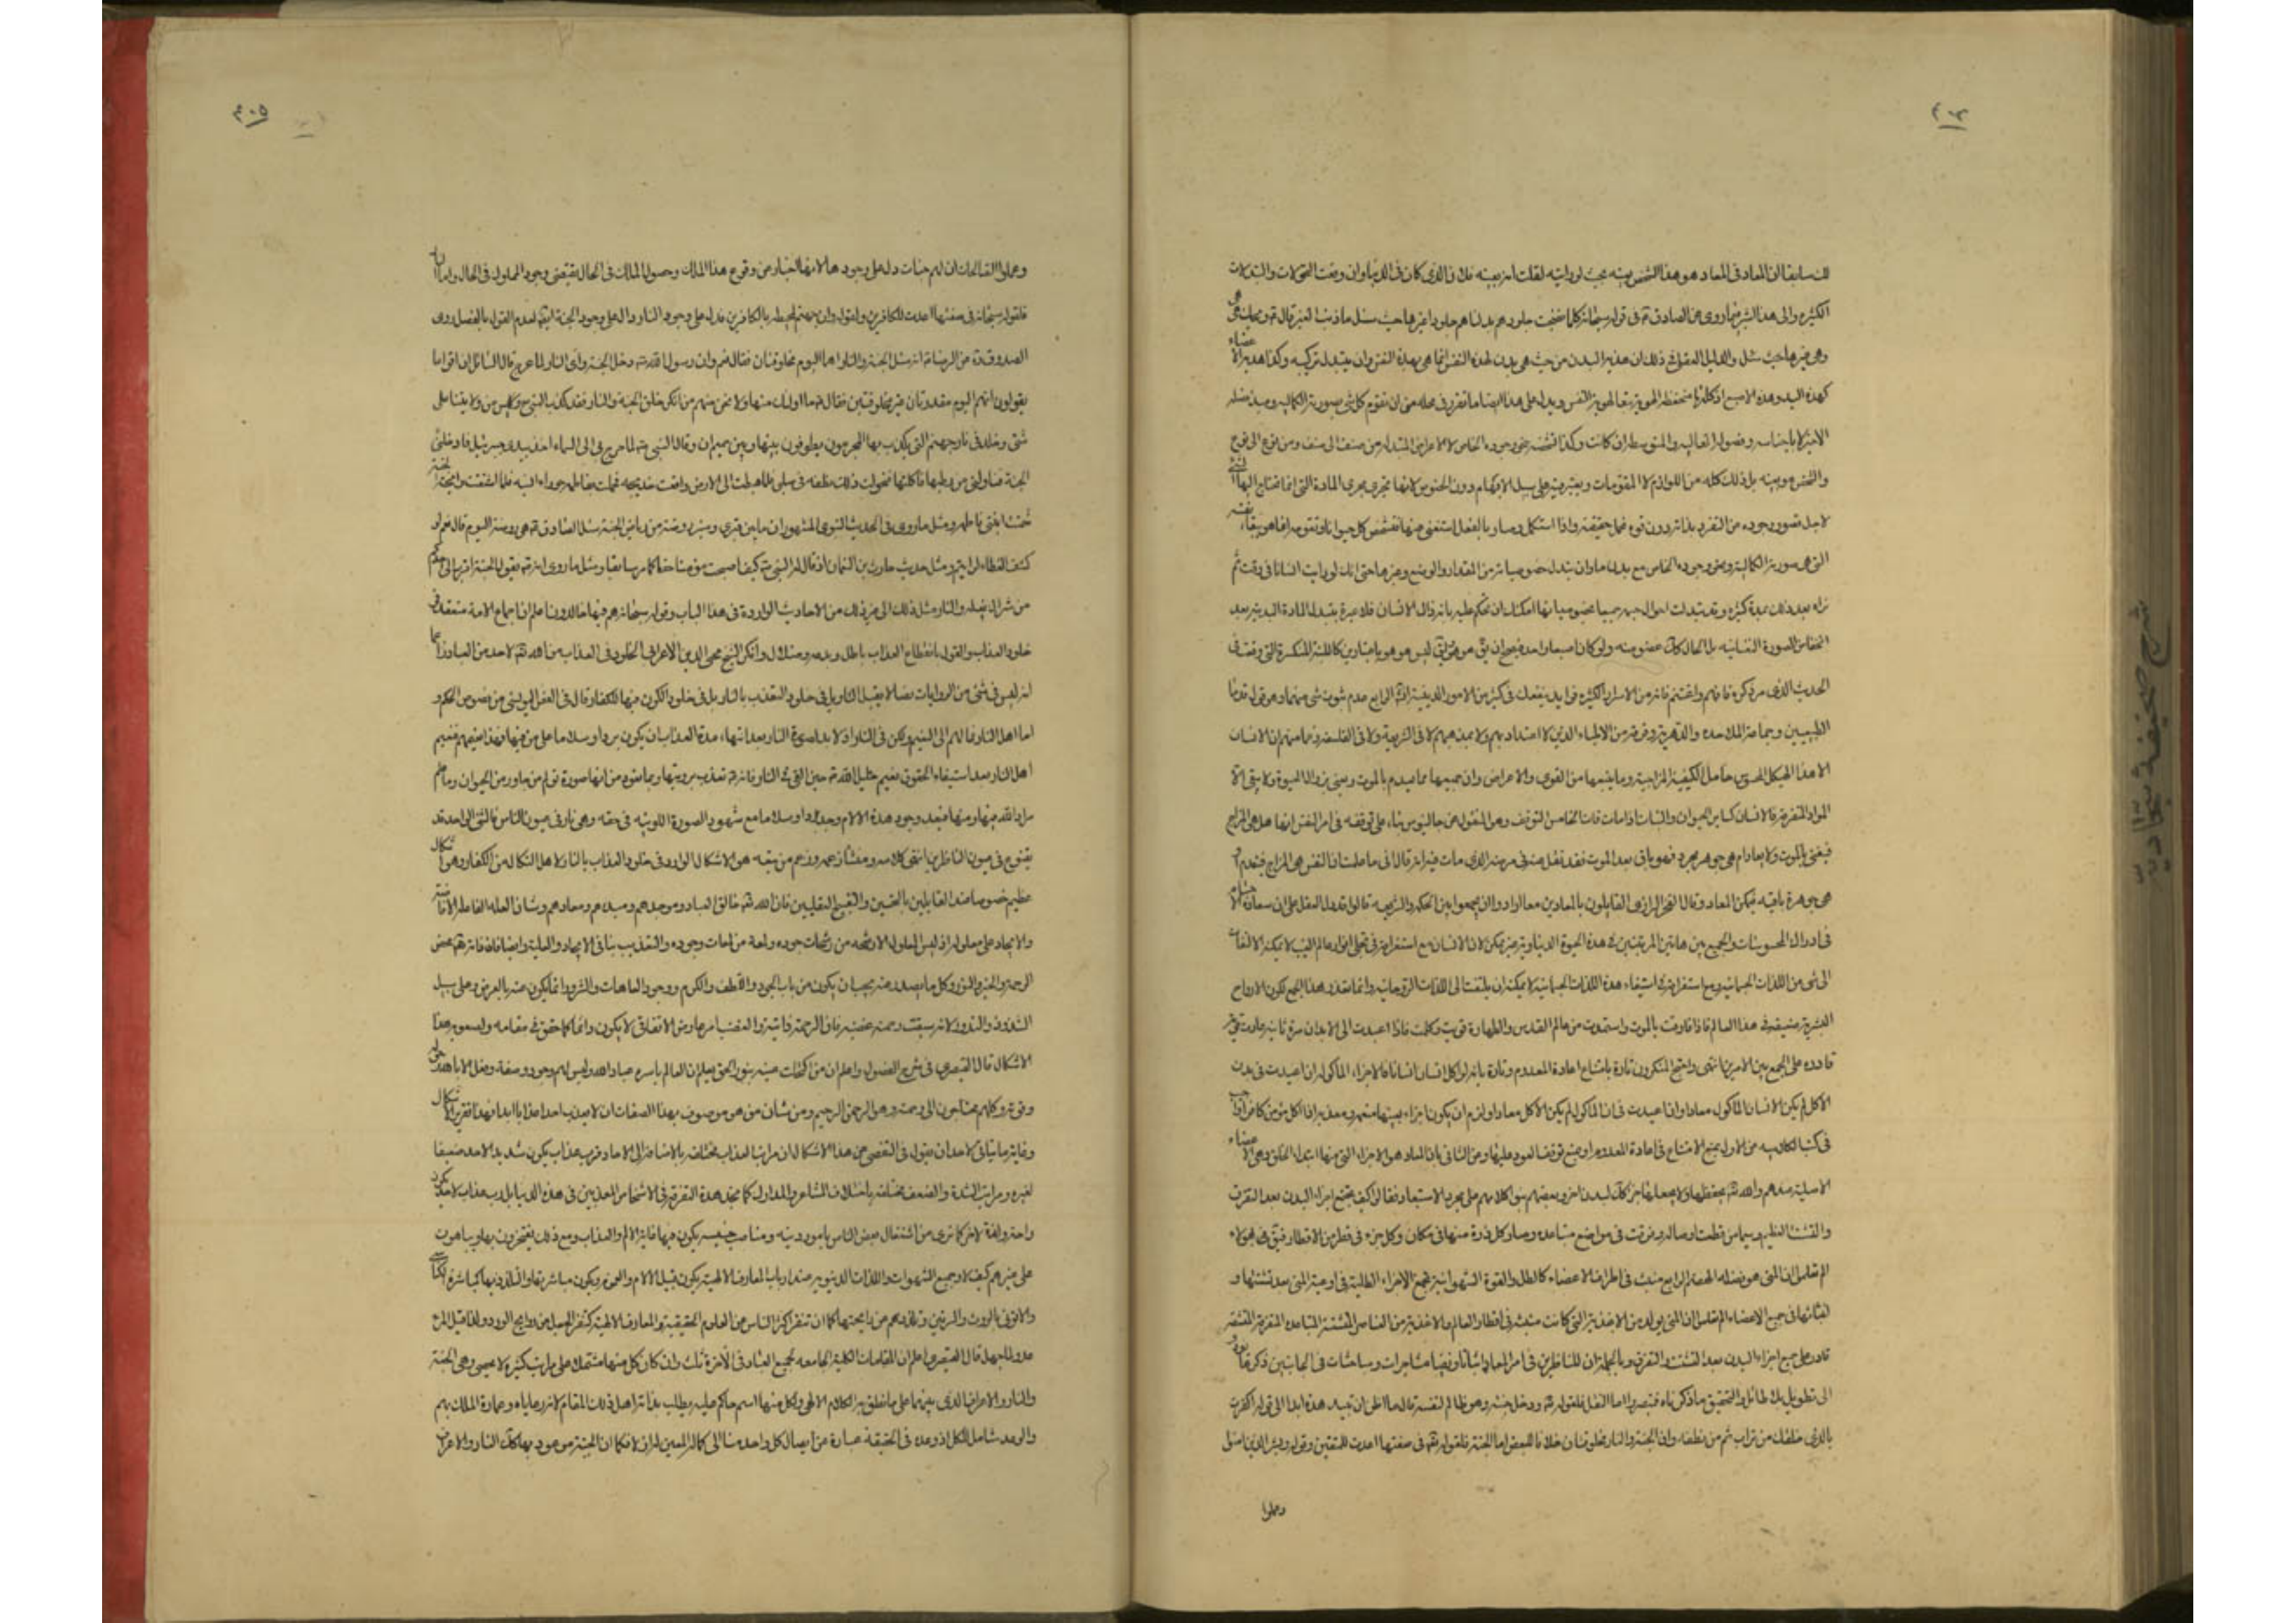 ٣٠٤
لك سابقا ان المعاد فى المعاد هو هذا الشخص بعينه بحيث لو رايته لقلت انه بعينه فلان الذى كان فى الدنيا وان وقعت التحولات والتبدلات
الكثيره والى هذا اشير فيما روى عن الصادق فى قوله سبحانه كلما نضجت جلودهم بدلناهم جلودا غيرها حيث سئل ما ذنب الغير قال هى
وهى غيرها حيث سئل والدليل العقلى ذلك ان هذيه البدن من حيث هى بدن لهذه النفس انما هى بهذه النفس وان يتبدل تركيبه وكذا هذيه الاعضاء
كهذه اليد وهذه الاصبع اذ كلها منحفظه الهوية تبعا لهوية النفس ويدل على هذا ايضا ما تقرر فى محله من ان تقوم كل شى بصورته الكماليه ومبدء فصله
الاخير لا باجناسه وفصوله العاليه والمتوسطه ان كانت وكذا تشخصه بنحو وجوده الخاص لا الاعراض المتبدله من صنف الى صنف ومن نوع الى نوع
والشخص هو بعينه بل ذلك كله من اللوازم لا المقومات ويعتبر فيه على سبيل الابهام دون الخصوص لانها تجرى مجرى المادة التى انما تحتاج اليها الشى
لاجل قصور وجوده عن التفرد بذاته دون قوه فما حقيقته واذا استكمل وصار بالفعل استغنى عنها فتشخص كل حيوان وتقومه انما هو ببقاء نفسه
التى هى صورته الكماليه ونحو وجوده الخاص مع بدن ما وان تبدل خصوصياته من المقدار والوضع وغيرها حتى انك لو رايت انسانا فى وقت ثم
تراه بعد ذلك بمدة كثيره وقد تبدلت احوال جسمه جميعا بخصوصياتها امكنك ان تحكم عليه بانه ذاك الانسان فلا عبرة بتبدل المادة البدنيه بعد
انحفاظ الصورة النفسانيه بل الحال كك عضو منه ولو كان اصبعا واحد فيصح ان يق هو هو وان يق ليس هو هو باعتبارين كاللبنه المنكسرة التى وقعت فى
الحديث الذى مر ذكره فافهم واغتنم فانه من الاسرار الكثيره فوايد ينفعك فى كثير من الامور الدينيه الرابع عدم ثبوت شى منهما وهو قول قدماء
الطبيعيين وجماعة الملاحده والدهرية وفرقة من الاطباء الذين لا اعتداد بهم ولا بمذهبهم لا فى الشريعة ولا فى الفلسفه زعما منهم ان الانسان
الا هذا الهيكل المحسوس حامل الكيفية المزاجية وما يتبعها من القوى والاعراض وان جميعها مما يعدم بالموت ويفنى بزوال الحيوة ولا يبقى الا
المواد المتفرقه فالانسان كساير الحيوان والنبات اذا مات فات الخامس التوقف وهو المنقول عن جالينوس بناء على توقفه فى امر النفس انها هل هى المزاج
فيفنى بالموت ولا يعاد ام هى جوهر مجرد فهو باق بعد الموت فقد نقل عنه فى مرضه الذى مات فيه انه قال انى ما علمت ان النفس هى المزاج فينعدم او
هى جوهرة باقيه فيمكن المعاد وقال الفخر الرازى القايلون بالمعادين معا ارادوا ان يجمعوا بين الحكمه والشريعه قالوا قد دل العقل على ان سعادة
فى ادراك المحسوسات والجمع بين هاتين المرتبتين فى هذه الحيوة الدنياوية غير ممكن لان الانسان مع استغراقه فى تجلى انوار عالم الغيب لا يمكنه الالتفات
الى شى من اللذات الجسمانيه ومع استغراقه فى استيفاء هذه اللذات الجسمانيه لا يمكنه ان يلتفت الى اللذات الروحانيه وانما تعذر هذا الجمع لكون الارواح
البشرية ضعيفه فى هذا العالم فاذا فارقت بالموت واستمدت من عالم القدس والطهارة قويت وكملت فاذا اعيدت الى الابدان مرة ثانيه عادت قويه
قادره على الجمع بين الامرين انتهى واحتج المنكرون تارة بامتناع اعادة المعدوم وتارة بانه لو اكل انسان انسانا فالاجزاء الماكوله ان اعيدت فى بدن
الاكل لم يكن الانسان الماكول معادا وان اعيدت فى الماكول لم يكن الاكل معادا ولزم ان يكون اجزاء بعينها منعمه ومعذبه اذا اكل مومن كافرا
فى كتب الكلاميه عن الاول بمنع الامتناع فى اعادة المعدوم او بمنع توقف العود عليها وعن الثانى بان المعاد هو الاجزاء التى منها ابتداء الخلق وهى الاعضاء
الاصليه عندهم والله يحفظها ولا يجعلها جزء كك لبدن اخر وبعضهم بنوا كلامهم على مجرد الاستبعاد فقالوا كيف يجتمع اجزاء البدن بعد التفرق
والتشتت العظيم وسيما من قطعت اوصاله وفرقت فى مواضع متباعده وصار كل ذرة منها فى مكان وكل جزء فى قطر من الاقطار فيق فى هولاء
الم تعلم ان المنى هو فضله الهضم الرابع منبث فى اطراف الاعضاء كالطل والقوة الشهوانية تجمع الاجزاء الطليه فى اوعية المنى بعد تشتتها و
انبثاثها فى جميع الاعضاء الم تعلم ان المنى يولد من الاغذية التى كانت منبثه فى اقطار العالم والاغذية من العناصر المتشتته المتباعده المتفرقه المنتشره
قادر على جمع اجزاء البدن بعد التشتت والتفرق وبالجمله ان للناظرين فى امر المعاد اثباتا ونفيا مشاجرات ومباحثات فى الجانبين ذكرها يودى
الى تطويل بلا طائل والتحقيق ما ذكرناه فتبصر واما النقل فلقوله ودخل جنته وهو ظالم لنفسه قال ما اظن ان تبيد هذه ابدا الى قوله اكفرت
بالذى خلقك من تراب ثم من نطفه وان الجنه والنار مخلوقتان خلافا للبعض اما الجنه فلقوله فى صفتها اعدت للمتقين وقوله وبشر الذين امنوا
وعملوا
٣٠٥
وعملوا الصالحات ان لهم جنات دل على وجودها لانها اخبار عن وقوع هذا الملك وحصول الملك فى الحال يقتضى وجود المملوك فى الحال واما النار
فلقوله سبحانه فى صفتها اعدت للكافرين ولقوله وان جهنم لمحيطه بالكافرين فدل على وجود النار دال على وجود الجنة لعدم القول بالفصل روى
الصدوق عن الرضا انه سئل الجنه والنار اهما اليوم مخلوقتان فقال نعم وان رسول الله دخل الجنه وراى النار لما عرج قال السائل ان اقواما
يقولون انهم اليوم مقدرتان غير مخلوقتين فقال ما اولئك منا ولا نحن منهم من انكر خلق الجنه والنار فقد كذب النبى وليس من ولايتنا على
شى وخلد فى نار جهنم التى يكذب بها المجرمون يطوفون بينها وبين حميم ان وقال النبى لما عرج بى الى السماء اخذ بيدى جبرئيل فادخلنى
الجنة فناولنى من رطبها فاكلتها فتحولت ذلك نطفه فى صلبى فلما هبطت الى الارض واقعت خديجه فحملت بفاطمه حوراء انسيه فلما اشتقت رايحة الجنة
شممت ابنتى فاطمه ومثل ما روى فى الحديث النبوى المشهور ان ما بين قبرى ومنبرى روضه من رياض الجنه سئل الصادق هى روضه اليوم قال نعم لو
كشف الغطاء لرايتم ومثل حديث حارث بن النعمان اذ قال له النبى كيف اصبحت مؤمنا حقا كما مر سابقا ومثل ما روى انه يقول الجنه اقرب الى احدكم
من شراك نعله والنار مثل ذلك الى غير ذلك من الاحاديث الواردة فى هذا الباب وقوله سبحانه هم فيها خالدون اعلم ان اجماع الامه منعقد فى
خلود العذاب والقول بانقطاع العذاب باطل وبدعه وضلال وانكر الشيخ محيى الدين الاعرابى الخلود فى العذاب من الله لاحد من العباد زعما
انه ليس فى شى من الروايات نصا لا يقبل التاويل فى خلود التعذب بالنار بل فى خلود الكون فيها للكفار وقال فى الفص اليونسى من فصوص الحكم و
اما اهل النار فمالهم الى النعيم ولكن فى النار اذ لا بد لصورة النار بعد انتهاء مدة العذاب ان يكون بردا وسلاما على من فيها وهذا نعيمهم فنعيم
اهل النار بعد استيفاء الحقوق نعيم خليل الله حين القى فى النار فانه تعذب برويتها وبما تعود من انها صورة تولم من جاورها من الحيوان وما علم
مراد الله فيها ومنها فبعد وجود هذه الالام وجد بردا وسلاما مع شهود الصورة اللونيه فى حقه وهى نار فى عيون الناس فالشى الواحد قد
يتنوع فى عيون الناظرين انتهى كلامه ومنشأ زعمه وزعم من تبعه هو الاشكال الوارد فى خلود العذاب بالنار لاهل النكال من الكفار وهو اشكال
عظيم خصوصا عند القايلين بالتحسين والتقبيح العقليين فان الله خالق العباد وموجدهم ومبدءهم ومعادهم وشان العله الفاعله الافاضه
والايجاد على معلوله اذ ليس المعلول الا رشحه من رشحات جوده ولمعة من لمعات وجوده والتعذيب ينافى الايجاد والعليه وايضا فان ذاته محض
الرحمه والخير والنور وكل ما يصدر عنه يجب ان يكون من باب الجود واللطف والكرم ووجود العاهات والشرور انما يكون عنه بالعرض وعلى سبيل
الشذوذ والندور لانه سبقت رحمته غضبه فان الرحمة ذاتية والغضب امر عارض الاتفاقى لا يكون دائما كما حقق فى مقامه ولصعوبه هذا
الاشكال قال القيصرى فى شرح الفصوص واعلم ان من اكتحلت عينه بنور الحق يعلم ان العالم باسره عباد الله وليس لهم وجود وصفة وفعل الا بالله وحوله
وقوته وكلهم محتاجون الى رحمته وهو الرحمن الرحيم ومن شان من هو موصوف بهذا الصفات ان لا يعذب احدا عذابا ابدا فهذا تقرير الاشكال
وغاية ما يتاتى لاحد ان يقول فى التفصى عن هذا الاشكال ان مراتب العذاب مختلفه بالاضافه الى الاحاد فرب عذاب يكون شديدا لاحد ضعيفا
لغيره ومراتب الشدة والضعف مختلفه باختلاف المشاعر والمدارك كما نجد هذه التفرقه فى الاشخاص المعذبين فى هذه الدنيا بل رب عذاب لاحد يكون
راحة ولذة لاخر كما نرى من اشتغال بعض الناس بامور دنيه ومناصب خسيسه يكون فيها غاية الالم والعذاب ومع ذلك يفتخرون بها ويباهون
على غيرهم كيف لا وجميع الشهوات واللذات الدنيويه عند ارباب المعارف الالهيه يكون من قبيل الالام والمحن ويكون مباشرتها والتلذذ بها كمباشرة الكناس
والاتونى بالروث والسرقين وتلذذهم من رايحتها كما ان تنفر اكثر الناس من العلوم الحقيقية والمعارف الالهيه كتنفر الجعل من روايح الورد ولذا قيل المرء
عدو لما جهل قال القيصرى اعلم ان المقامات الكليه الجامعه لجميع العباد فى الاخرة ثلث وان كان كل منها مشتملة على مراتب كثيره لا تحصى وهى الجنة
والنار والاعراف الذى بينهما على ما نطق به الكلام الالهى ولكل منها اسم حاكم عليه يطلب بذاته اهل ذلك المقام لانه رعاياه وعمارة الملك بهم
والوعد شامل للكل اذ وعده فى الحقيقة عبارة عن ايصال كل واحد منا الى كماله المعين له ازلا فكما ان الجنة موعود بها كك النار والاعراف
شرح صحيفه سجاديه